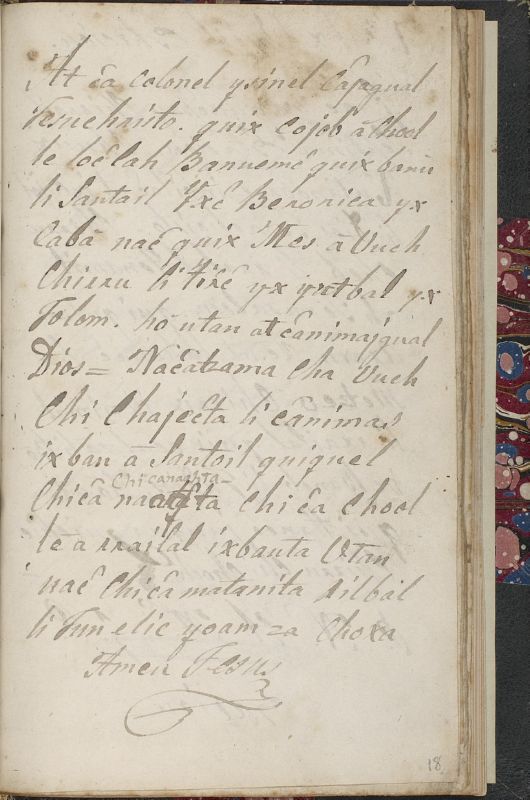 At câ colonel ysinel Cajagual
Jesuchristo. quix cojob â Chool
le locêlah Banuemê quix banû
li Santail Yxê Beronica yx
Cabâ naê quix Mes â Uuch
Chirru li tirê yx yxtbal yx
Tolom. hô utan at cânimajqual
Dios = Naêatzama Cha Uuch
Chi Chajecta li canimas
ix ban â Santoil quiquel
Chicanaghta-
Chicâ na Chi câ Chool
le a rrailal ixbanta Utan
naê Chi câ matanita silbal
li Tun elic yoam za Choxa
Amen Jesus
18